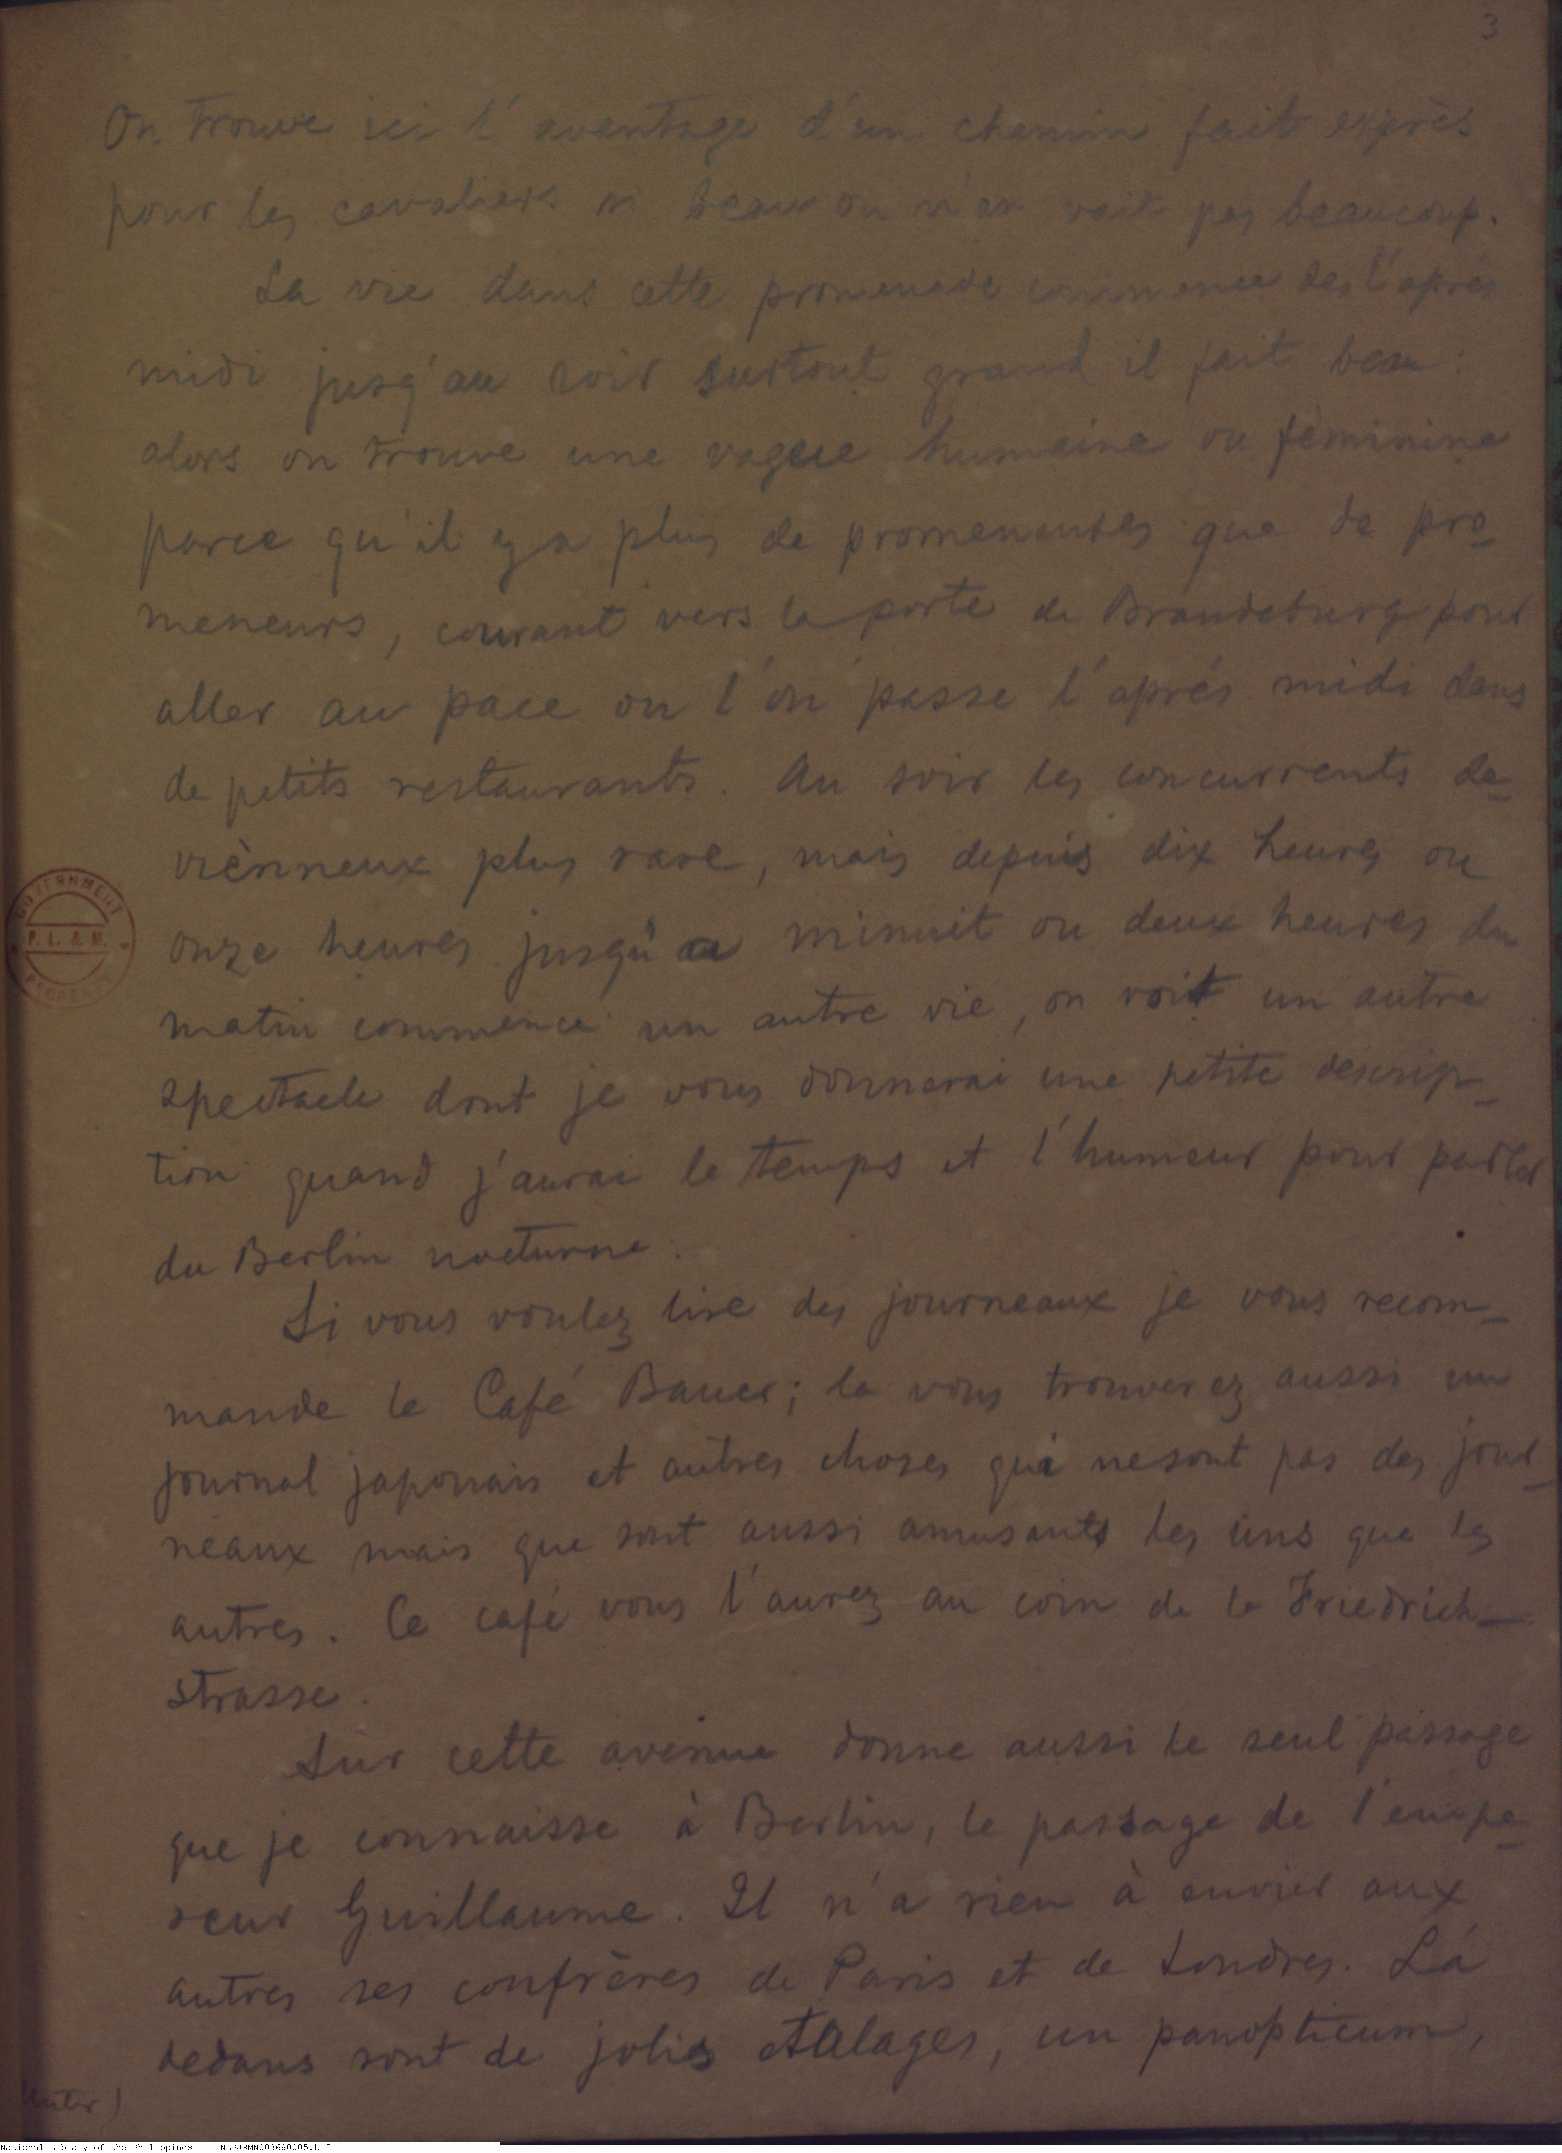 3
On trouve ici l'avantage d'un chemin fait exprès
pour les cavaliers si beau on n'en voit pas beaucoup.
La vie dans cette promenade commence des l'après
midi jusq'au soir surtout quand il fait beau:
alors on trouve une vague humaine ou féminine
parce qu'il y a plus de promenantes que de pro-
meneurs, courant vers la porte de Brandeburg pour
aller au pace ou l'on passe l'aprés midi dans
de petits restaurants. Au soir les concurrents de-
viènneux plus rare, mais depuis dix heures ou
onze heures jusqu'a minuit ou deux heures du
matin commence un autre vie, on voit un autre
spectacle dont je vous donnerai une petite descrip-
tion quand j'aurai le temps et l'humeur pour parler
du Berlin nocturne.
Si vous voulez lire des journeaux je vous recom-
mande le Café Bauer; la vous trouverez aussi un
journal japonais et autres choses qui ne sont pas des jour-
neaux mais que sont aussi amusants les uns que les
autres. Ce café vous l'aurez au coin de la Friedrich-
strasse.
Sur cette avenue donne aussi le seul passage
que je connaisse à Berlin, le passage de l'empe-
reur Guillaume. Il n'a rien à envier aux
autres ses confrères de Paris et de Londres. Lá
dedans sont de jolis etalages, un panopticum,
GOVERNMENT
P. L. & M.
PROPERTY
National Library of the Philippines